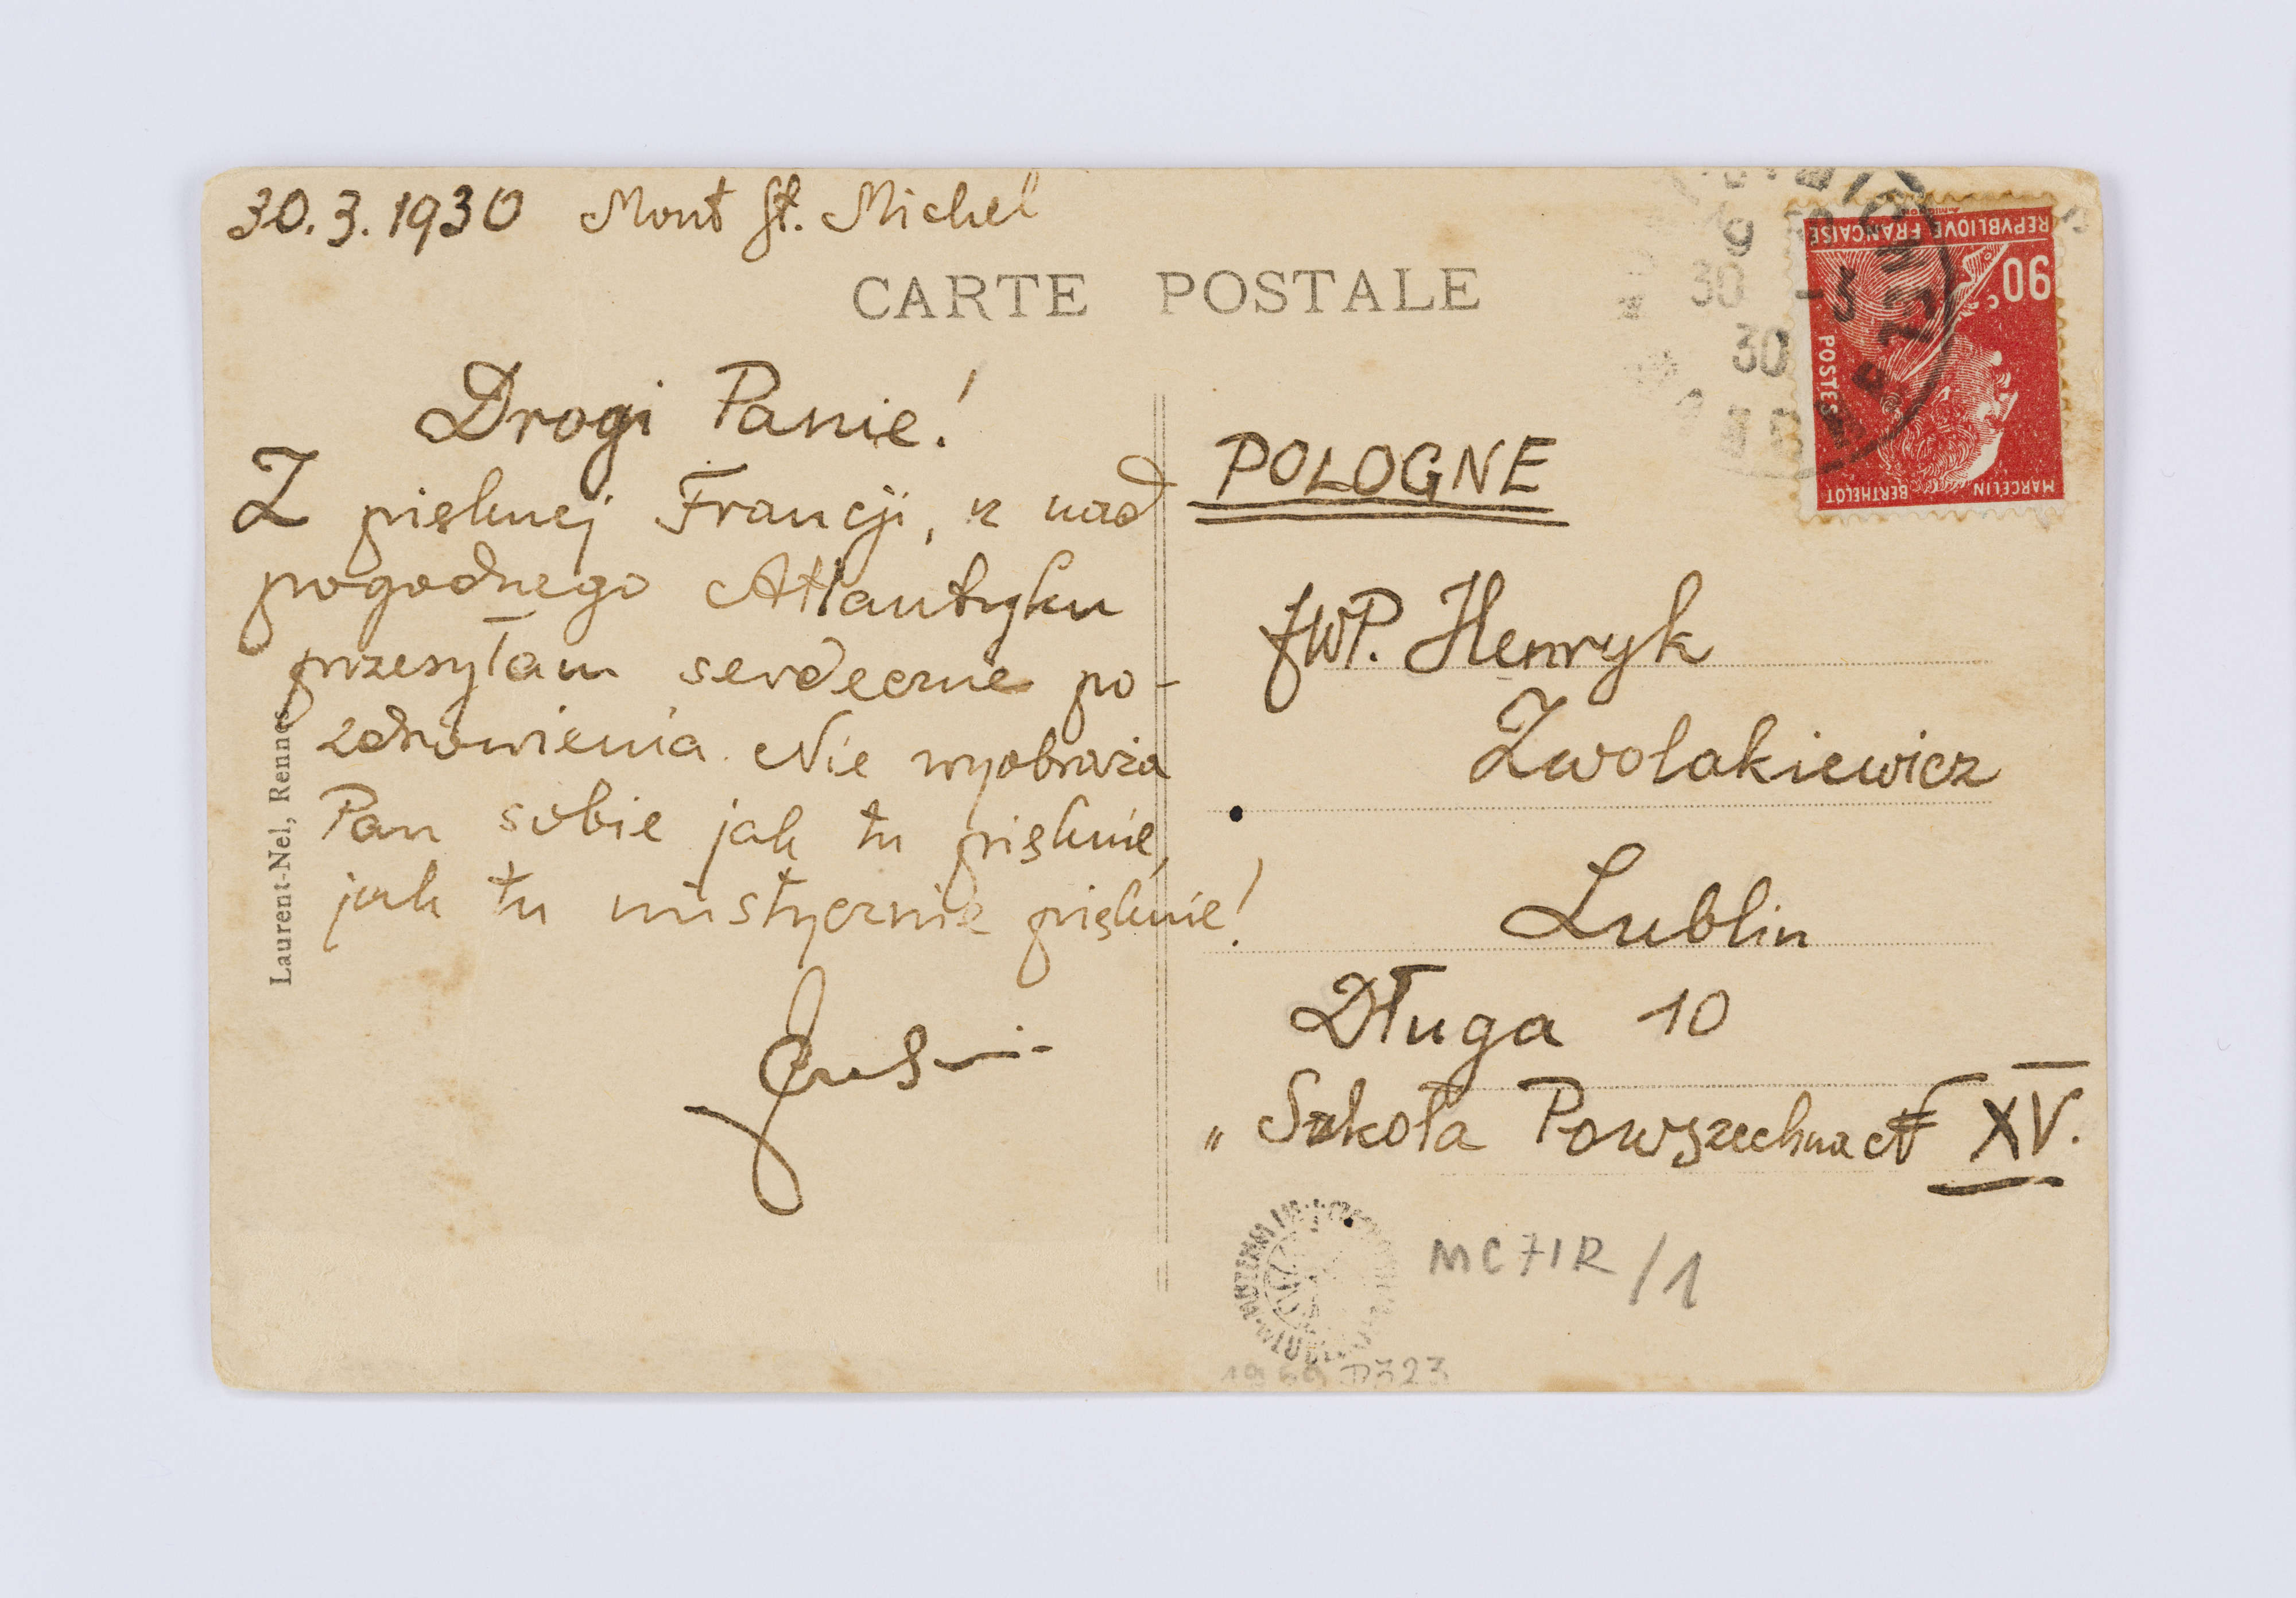 30.3.1930 Mont St. Michel
CARTE POSTALE
Drogi Panie!
Z pięknej Francji, z nad
pogodnego Atlantyku
przesyłam serdeczne po-
zdrowienia. Nie wyobraża
Pan sobie jak tu pięknie,
jak tu mistycznie pięknie!
Laurent-Nel, Rennes
REPVBLIQVE FRANÇAISE
90c
POSTES
MARCELIN BERTHELOT
9
30 -3
30
POLOGNE
JWP. Henryk
Zwolakiewicz
Lublin
Długa 10
„ Szkoła Powszechna N XV.
MC71R/1